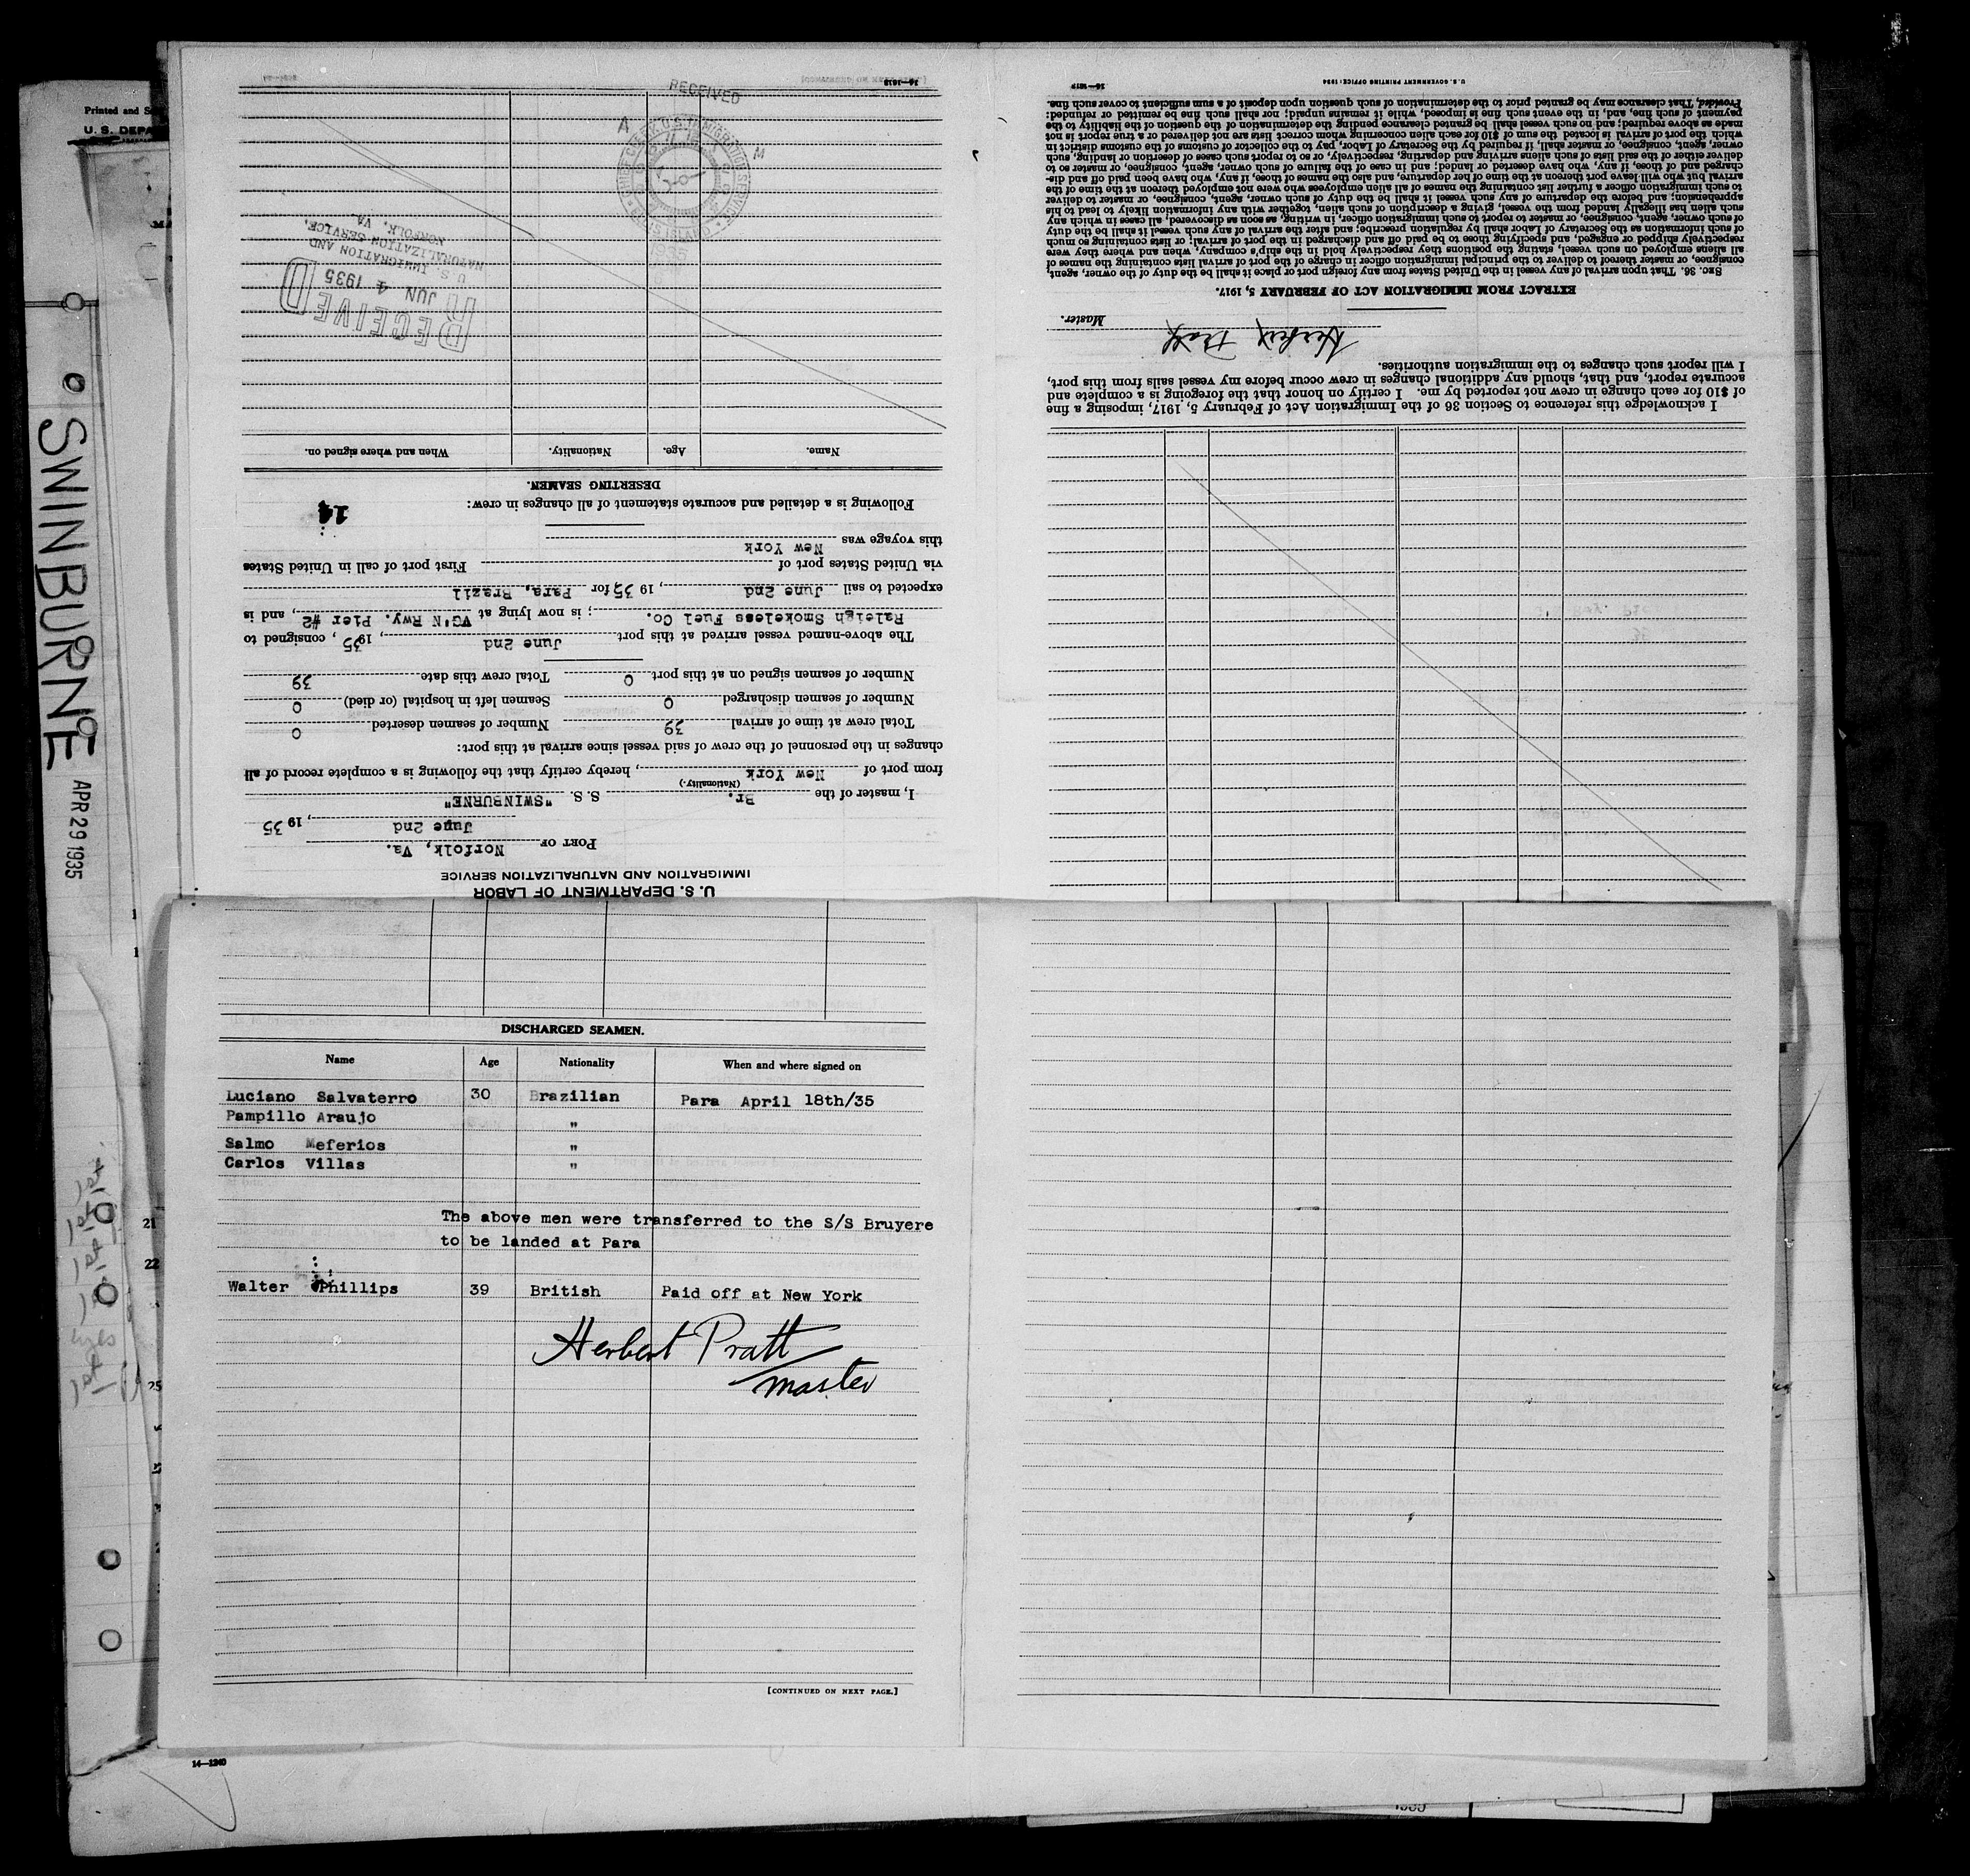 Printed and
U. S. DEPA
SWINBURNE
APR 29 1935
U. S. DEPARTMENT OF LABOR
IMMIGRATION AND NATURALIZATION SERVICE
PORT OF Norfolk, Va.
June 2nd, 19 35
I, master of the Br. S. S. "SWINBURNE"
(Nationality.)
from port of New York, hereby certify that the following is a complete record of all
changes in the personnel of the crew of said vessel since arrival at this port:
Total crew at time of arrival 39 Number of seamen deserted 0
Number of seamen discharged 0 Seamen left in hospital (or died) 0
Number of seamen signed on at this port 0 Total crew this date 39
The above-named vessel arrived at this port June 2nd, 1935, consigned to
Raleigh Smokeless Fuel Co.; is now lying at VG'N Rwy. Pier #2, and is
expected to sail June 2nd, 19 35 for Para, Brazil
via United States port of First port of call in United States
this voyage was New York
14
Following is a detailed and accurate statement of all changes in crew:
DESERTING SEAMEN.
Name. Age. Nationality. When and where signed on.
RECEIVED
JUN 4 1935
U. S. IMMIGRATION AND
NATURALIZATION SERVICE,
NORFOLK, VA.
RECEIVED
A M
ELLIS ISLAND
14—1818
I acknowledge this reference to Section 36 of the Immigration Act of February 5, 1917, imposing a fine
of $10 for each change in crew not reported by me. I certify on honor that the foregoing is a complete and
accurate report, and that, should any additional changes in crew occur before my vessel sails from this port,
I will report such changes to the immigration authorities.
Herbert Pratt
Master.
EXTRACT FROM IMMIGRATION ACT OF FEBRUARY 5, 1917.
SEC. 36. That upon arrival of any vessel in the United States from any foreign port or place it shall be the duty of the owner, agent,
consignee, or master thereof to deliver to the principal immigration officer in charge of the port of arrival lists containing the names of
all aliens employed on such vessel, stating the positions they respectively hold in the ship's company, when and where they were
respectively shipped or engaged, and specifying those to be paid off and discharged in the port of arrival; or lists containing so much
of such information as the Secretary of Labor shall by regulation prescribe; and after the arrival of any such vessel it shall be the duty
of such owner, agent, consignee, or master to report to such immigration officer, in writing, as soon as discovered, all cases in which any
such alien has illegally landed from the vessel, giving a description of such alien, together with any information likely to lead to his
apprehension; and before the departure of any such vessel it shall be the duty of such owner, agent, consignee, or master to deliver
to such immigration officer a further list containing the names of all alien employees who were not employed thereon at the time of the
arrival but who will leave port thereon at the time of her departure, and also the names of those, if any, who have been paid off and dis-
charged and of those, if any, who have deserted or landed; and in case of the failure of such owner, agent, consignee, or master so to
deliver either of the said lists of such aliens arriving and departing, respectively, or so to report such cases of desertion or landing, such
owner, agent, consignee, or master shall, if required by the Secretary of Labor, pay to the collector of customs of the customs district in
which the port of arrival is located the sum of $10 for each alien concerning whom correct lists are not delivered or a true report is not
made as above required; and no such vessel shall be granted clearance pending the determination of the question of the liability to the
payment of such fine, and, in the event such fine is imposed, while it remains unpaid; nor shall such fine be remitted or refunded:
Provided, That clearance may be granted prior to the determination of such question upon deposit of a sum sufficient to cover such fine.
U. S. GOVERNMENT PRINTING OFFICE: 1934
DISCHARGED SEAMEN.
Name Age Nationality When and where signed on
Luciano Salvaterro 30 Brazilian Para April 18th/35
Pampillo Araujo "
Salmo Meferios "
Carlos Villas "
The above men were transferred to the S/S Bruyere
to be landed at Para
Walter Phillips 39 British Paid off at New York
Herbert Pratt
master
[CONTINUED ON NEXT PAGE.]
14—1240
21
22
25